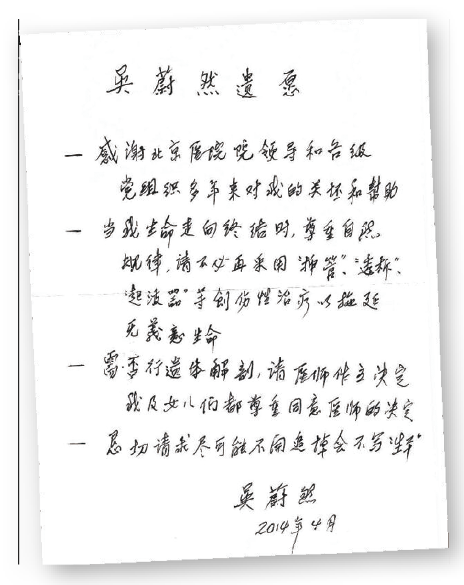 吴蔚然遗愿
一 感谢北京医院院领导和各级
党组织多年来对我的关怀和帮助
一 当我生命走向终结时,尊重自然
规律,请不必再采用“插管”、“透析”、
“起波器”等创伤性治疗以拖延
无义意生命
一 需否行遗体解剖,请医师作主决定
我及女儿们都尊重同意医师的决定
一 恳切请求尽可能不开追悼会不写“生平”
吴蔚然
2014年4月